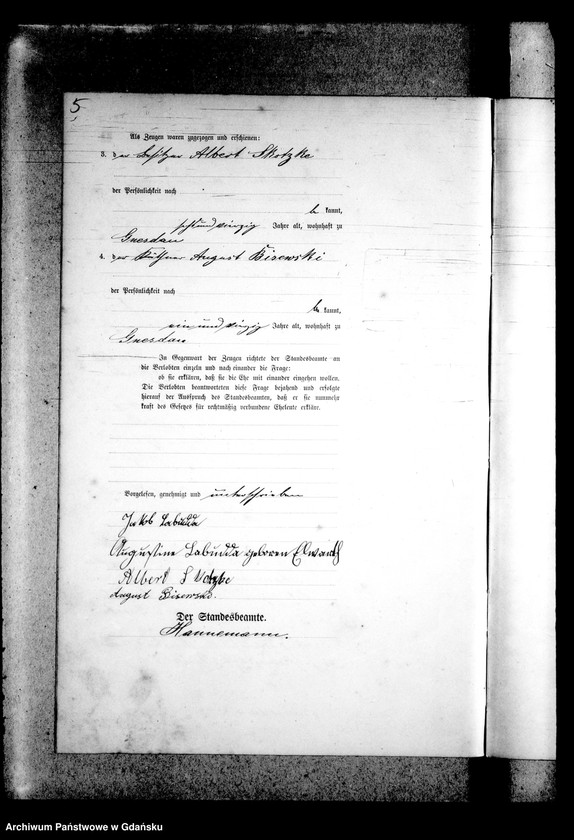 5
Als Zeugen waren zugezogen und erschienen:
3. der Besitzer Albert Skotzke
der Persönlichkeit nach
be kannt,
sechsundvierzig Jahre alt, wohnhaft zu
Gnesdau
4. der August Bisewski
der Persönlichkeit nach
be kannt,
ein und vierzig Jahre alt, wohnhaft zu
Gnesdau
In Gegenwart der Zeugen richtete der Standesbeamte an
die Verlobten einzeln und nach einander die Frage:
ob sie erklären, daß sie die Ehe mit einander eingehen wollen.
Die Verlobten beantworteten diese Frage bejahend und erfolgte
hierauf der Ausspruch des Standesbeamten, daß er sie nunmehr
kraft des Gesetzes für rechtmäßig verbundene Eheleute erkläre.
Vorgelesen, genehmigt und unterschrieben
Jakob Labudda
Augustine Labudda geboren Elwardt
Albert Skotzke
August Bisewski.
Der Standesbeamte.
Hannemann.
Archiwum Państwowe w Gdańsku